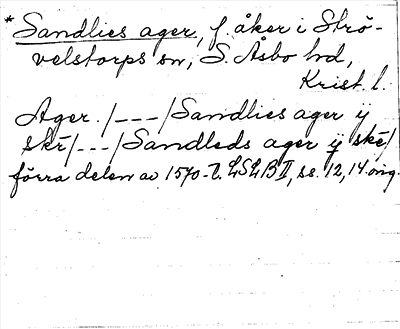 * Sandlies ager, f. åker i Strö-
velstorps sn, S. Åsbo hd,
Krist. l.
Ager. /---/ Sandlies ager ÿ
skē /---/ Sandleds ager ÿ skē /
förra delen av 1570-t. LSLB II, ss. 12, 14 orig.